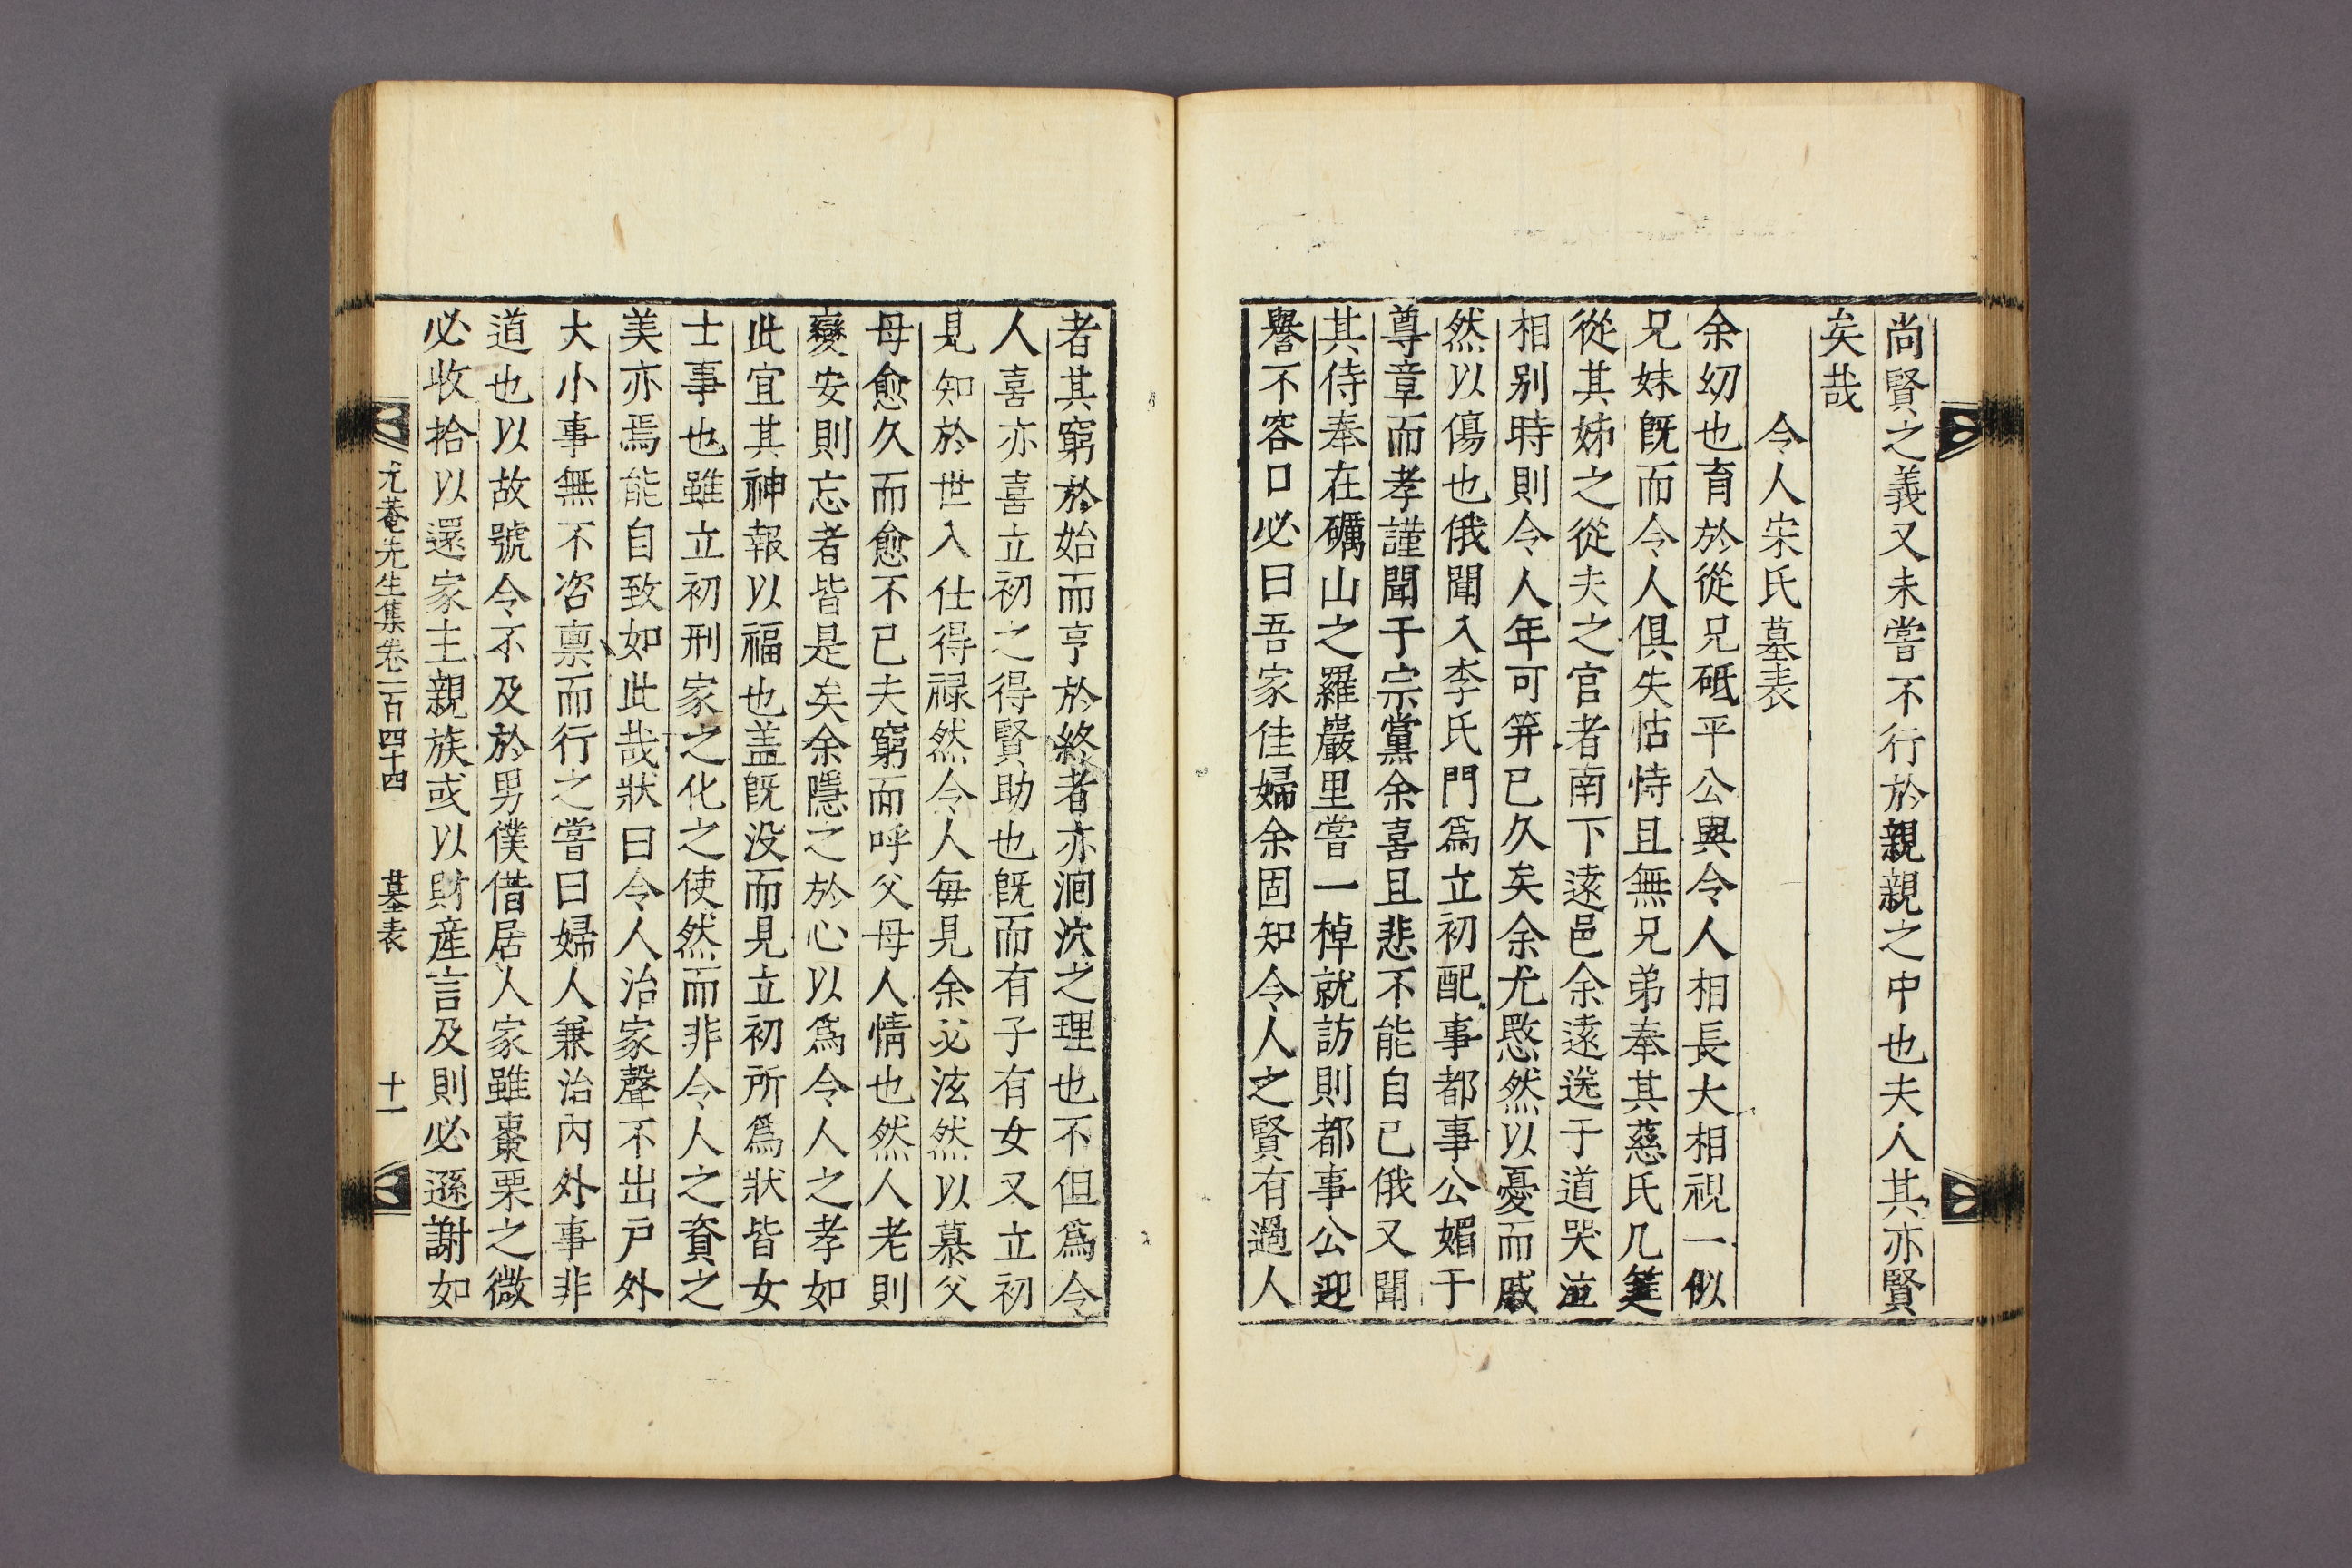 尚賢之義又未嘗不行於親親之中也夫人其亦賢
矣哉
令人宋氏墓表
余幼也育於從兄砥平公與令人相長大相視一似
兄妹旣而令人俱失怙恃且無兄弟奉其慈氏几筵
從其姊之從夫之官者南下遠邑余遠送于道哭泣
相別時則令人年可笄已久矣余尤愍然以憂而戚
然以傷也俄聞入李氏門爲立初配事都事公媚于
尊章而孝謹聞于宗黨余喜且悲不能自已俄又聞
其侍奉在礪山之羅巖里嘗一棹就訪則都事公迎
譽不容口必曰吾家佳婦余固知令人之賢有過人
者其窮於始而亨於終者亦洄沇之理也不但爲令
人喜亦喜立初之得賢助也旣而有子有女又立初
見知於世入仕得祿然令人每見余必泫然以慕父
母愈久而愈不已夫窮而呼父母人情也然人老則
變安則忘者皆是矣余隱之於心以爲令人之孝如
此宜其神報以福也盖旣沒而見立初所爲狀皆女
士事也雖立初刑家之化之使然而非令人之資之
美亦焉能自致如此哉狀曰令人治家聲不出戶外
大小事無不咨禀而行之嘗曰婦人兼治內外事非
道也以故號令不及於男僕借居人家雖棗栗之微
必收拾以還家主親族或以財産言及則必遜謝如
尤菴先生集卷一百四十四 墓表 十一